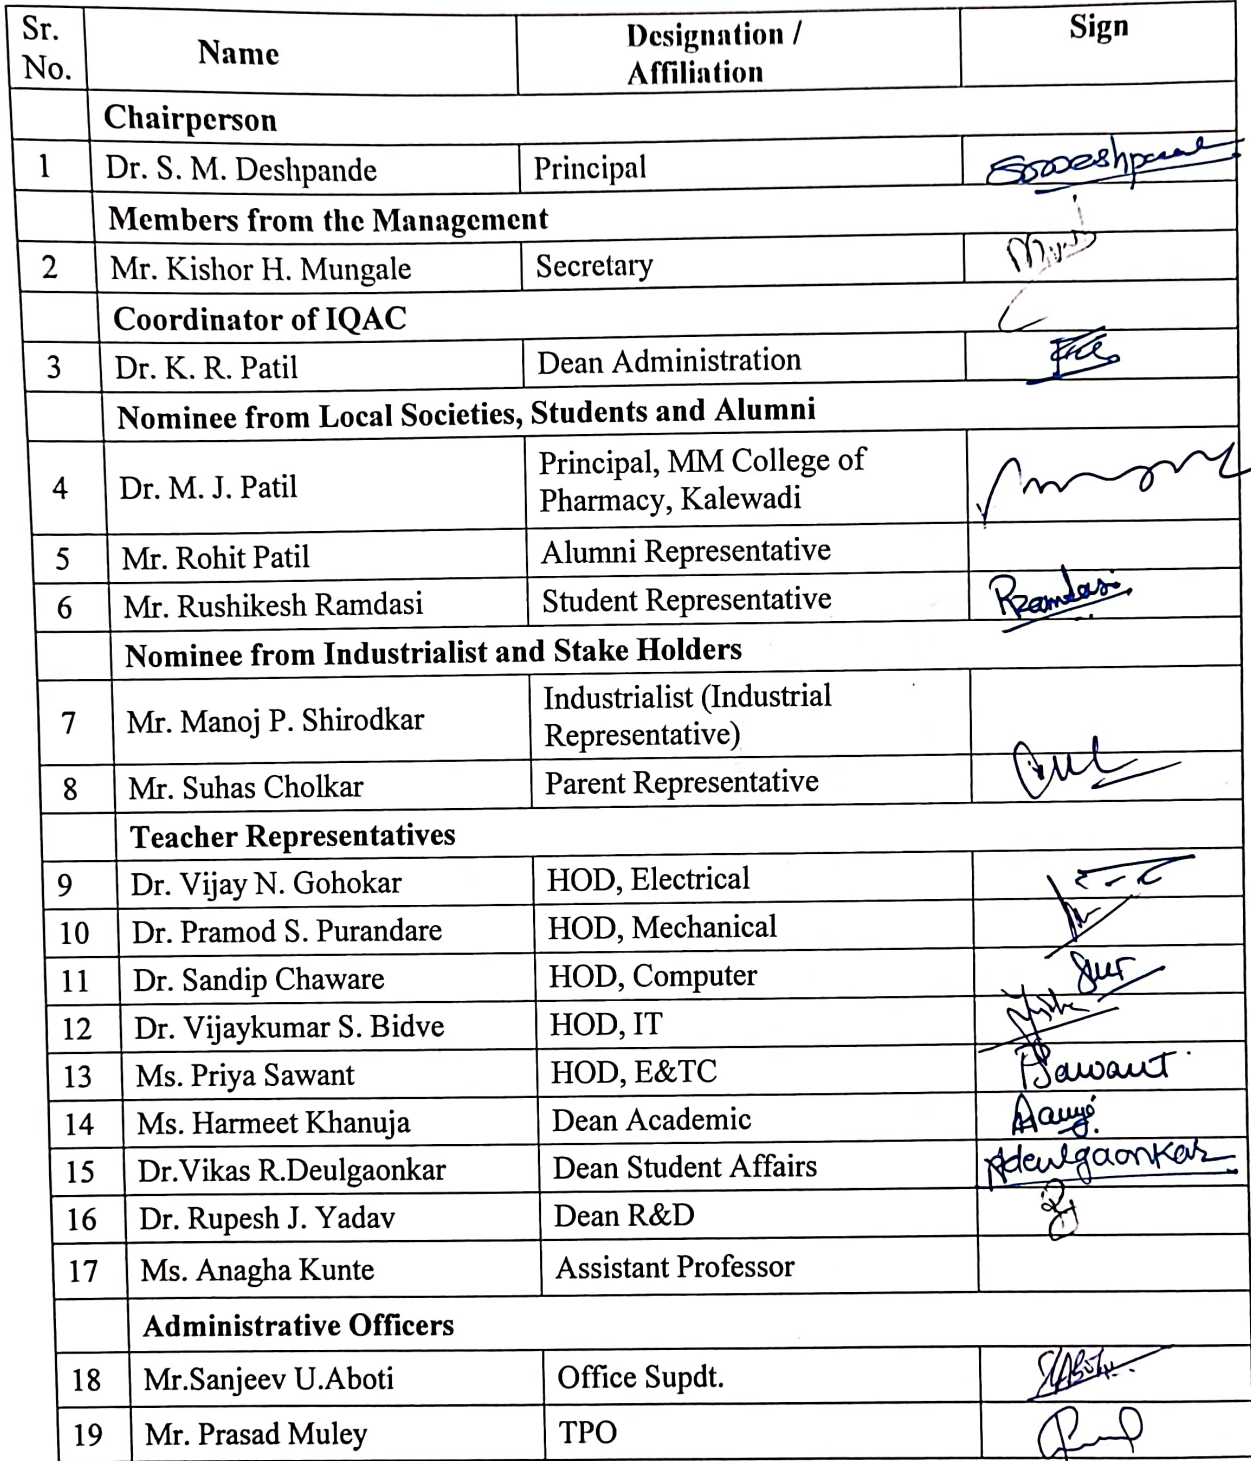 Sr. No. Name Designation / Affiliation Sign
Chairperson
1 Dr. S. M. Deshpande Principal SMDeshpande
Members from the Management
2 Mr. Kishor H. Mungale Secretary
Coordinator of IQAC
3 Dr. K. R. Patil Dean Administration
Nominee from Local Societies, Students and Alumni
4 Dr. M. J. Patil Principal, MM College of Pharmacy, Kalewadi
5 Mr. Rohit Patil Alumni Representative
6 Mr. Rushikesh Ramdasi Student Representative RRamdasi
Nominee from Industrialist and Stake Holders
7 Mr. Manoj P. Shirodkar Industrialist (Industrial Representative)
8 Mr. Suhas Cholkar Parent Representative
Teacher Representatives
9 Dr. Vijay N. Gohokar HOD, Electrical
10 Dr. Pramod S. Purandare HOD, Mechanical
11 Dr. Sandip Chaware HOD, Computer
12 Dr. Vijaykumar S. Bidve HOD, IT
13 Ms. Priya Sawant HOD, E&TC PSawant
14 Ms. Harmeet Khanuja Dean Academic
15 Dr.Vikas R.Deulgaonkar Dean Student Affairs Deulgaonkar
16 Dr. Rupesh J. Yadav Dean R&D
17 Ms. Anagha Kunte Assistant Professor
Administrative Officers
18 Mr.Sanjeev U.Aboti Office Supdt.
19 Mr. Prasad Muley TPO